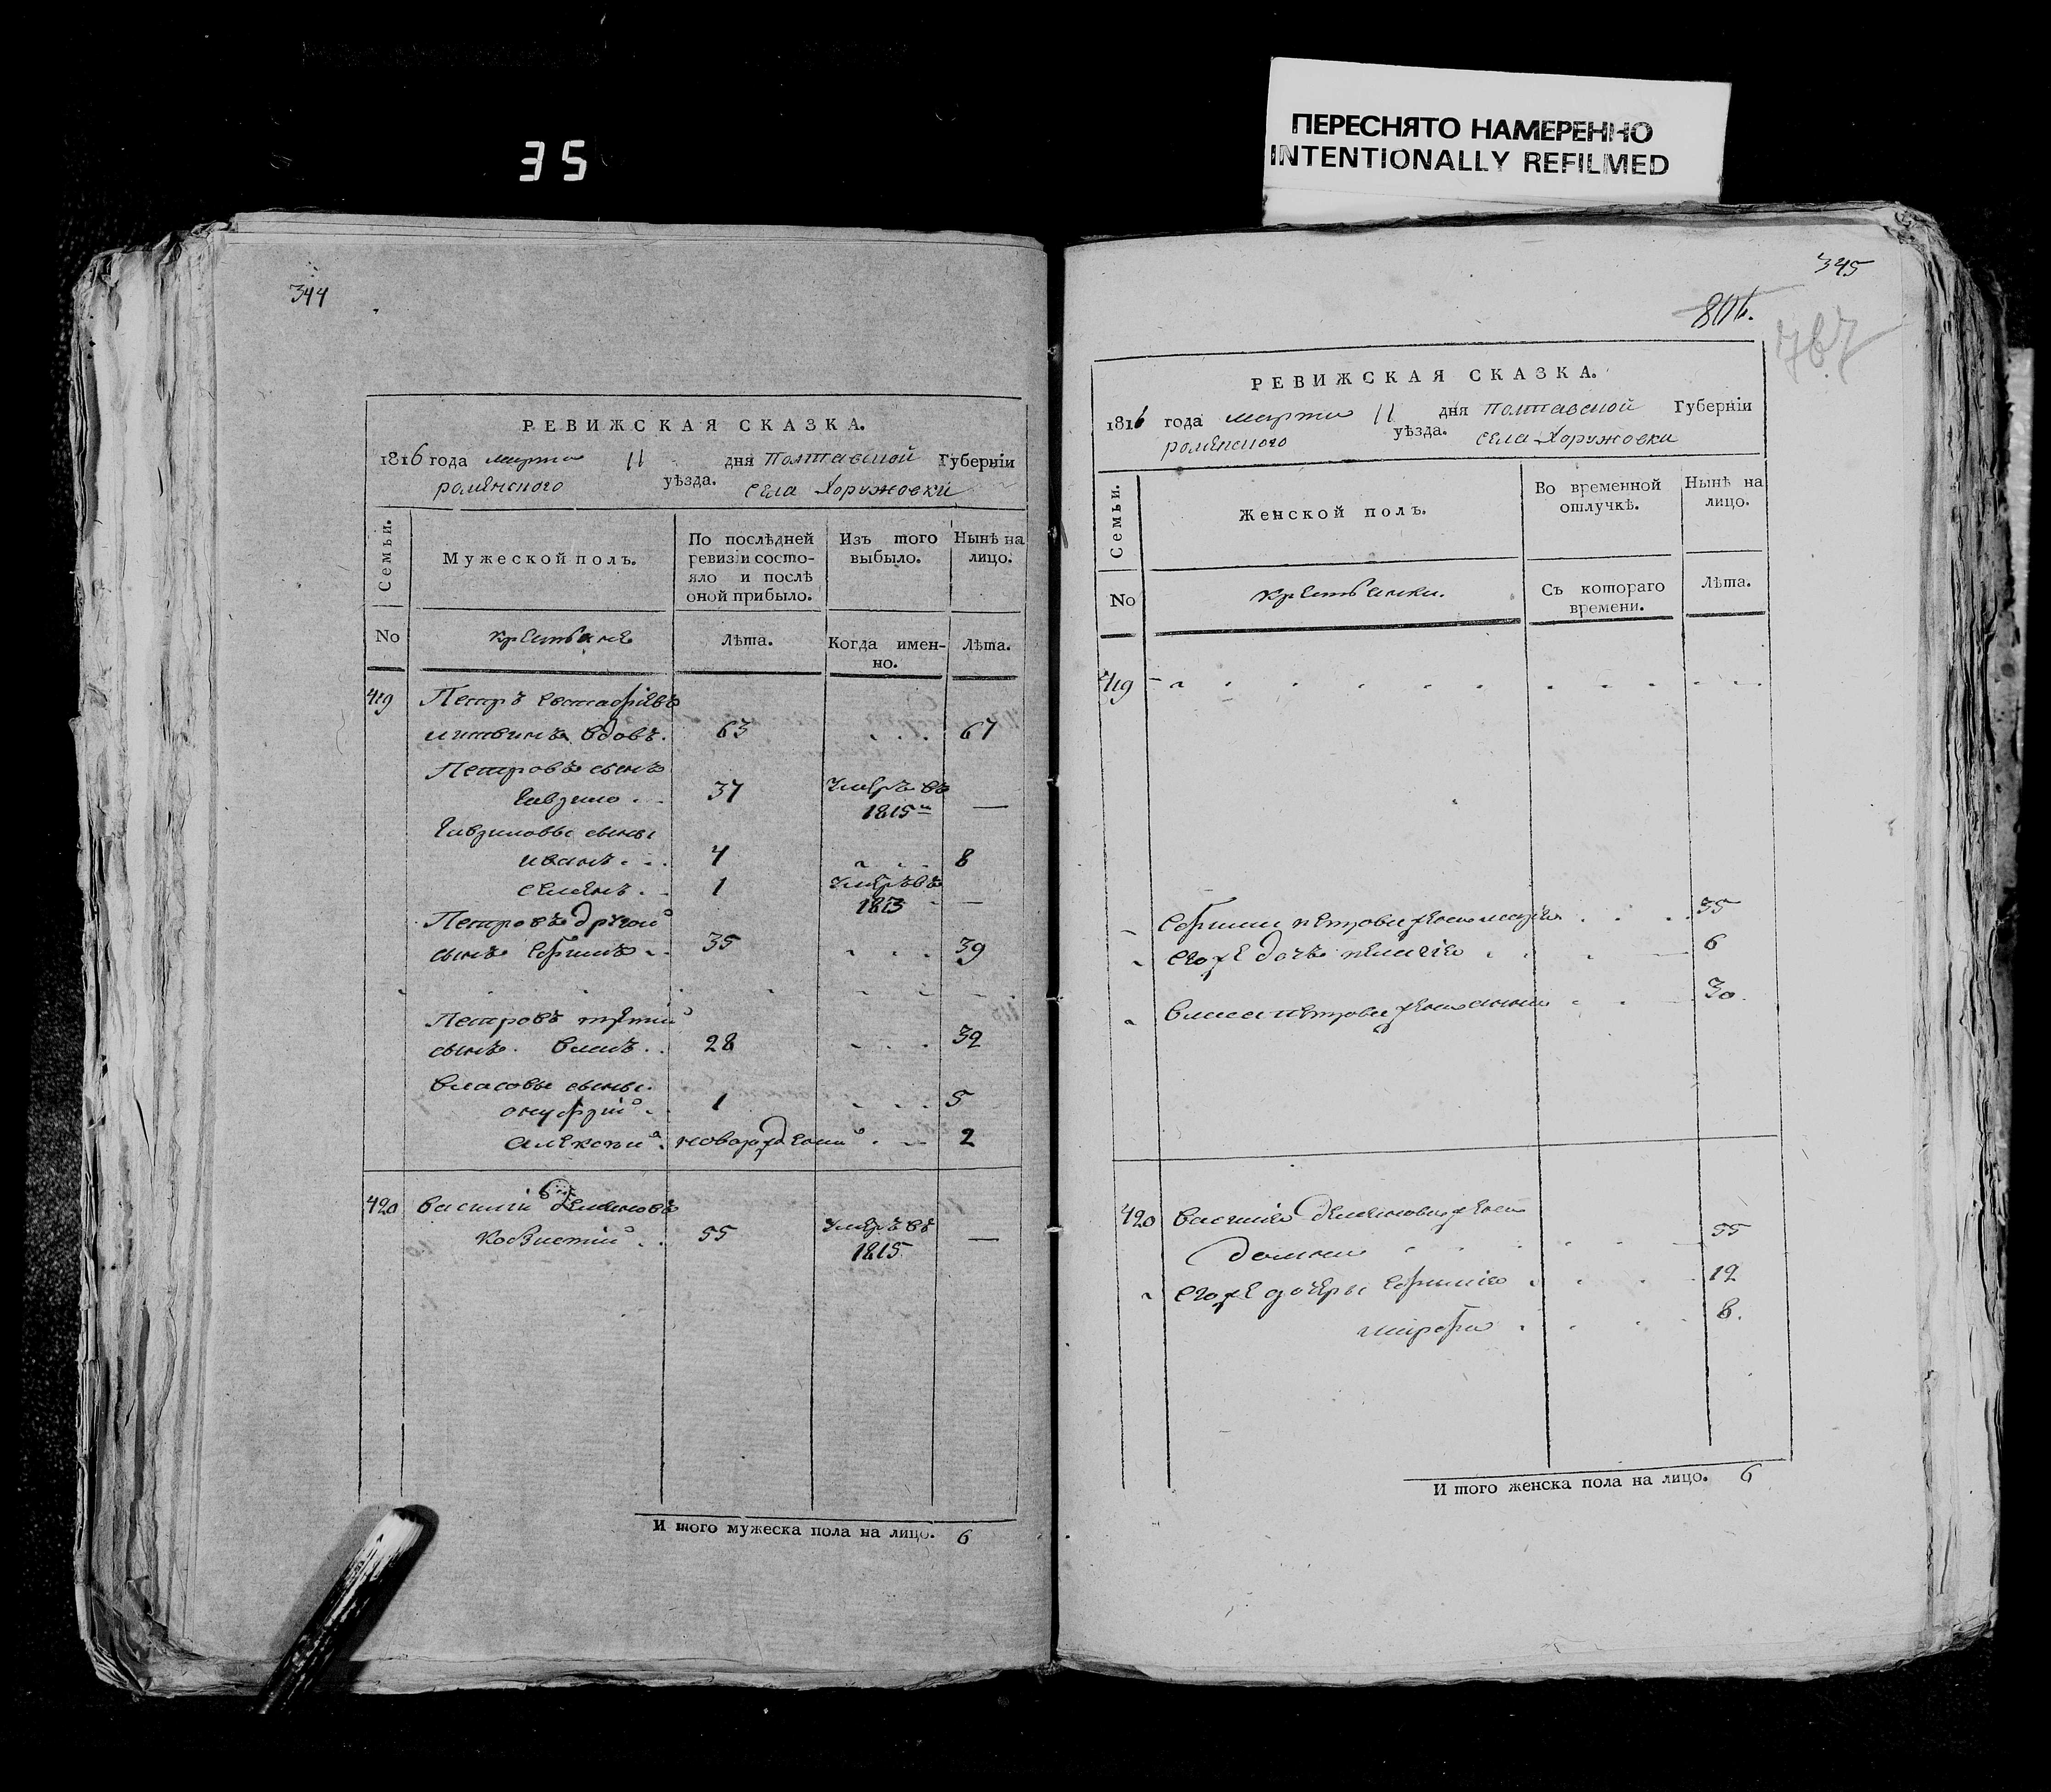 35
ПЕРЕСНЯТО НАМЕРЕННО
INTENTIONALLY REFILMED
344
РЕВИЖСКАЯ СКАЗКА.
1816 года марта 11 дня Полтавской Губерніи
роменского уѣзда. села Хоружовки
Семьи.
Мужеской полъ.
По послѣдней ревизіи состояло и послѣ оной прибыло.
Изъ того выбыло.
Нынѣ на лицо.
No
крестьяне
Лѣта.
Когда именно.
Лѣта.
419 Петръ Евстафіевъ
литвинъ вдовъ. 63 67
Петровъ сынъ
Гаврило 37 Умеръ въ 1815 —
Гавриловы сыны
иванъ 4 8
семенъ 1 Умеръ въ 1813 —
Петровъ другой
сынъ Ефимъ 35 39
Петровъ третий
сынъ Власъ 28 32
Власовы сыны
онуфрий 1 5
Алексѣй новорожденный 2
420 Василий Деменовъ
55 Умеръ въ 1815 —
И того мужеска пола на лицо. 6
345
801.
767
РЕВИЖСКАЯ СКАЗКА.
1816 года марта 11 дня Полтавской Губерніи
роменского уѣзда. села Хоружовки
Семьи.
Женской полъ.
Во временной отлучкѣ.
Нынѣ на лицо.
No
крестьянки.
Съ котораго времени.
Лѣта.
419
Ефима петрова жена 35
его же дочь пелагея 6
Власа петрова жена анна 30.
420 Василия Деменова жена
Домна 55
его же дочеры Ефимия 12
марфа 8.
И того женска пола на лицо. 6